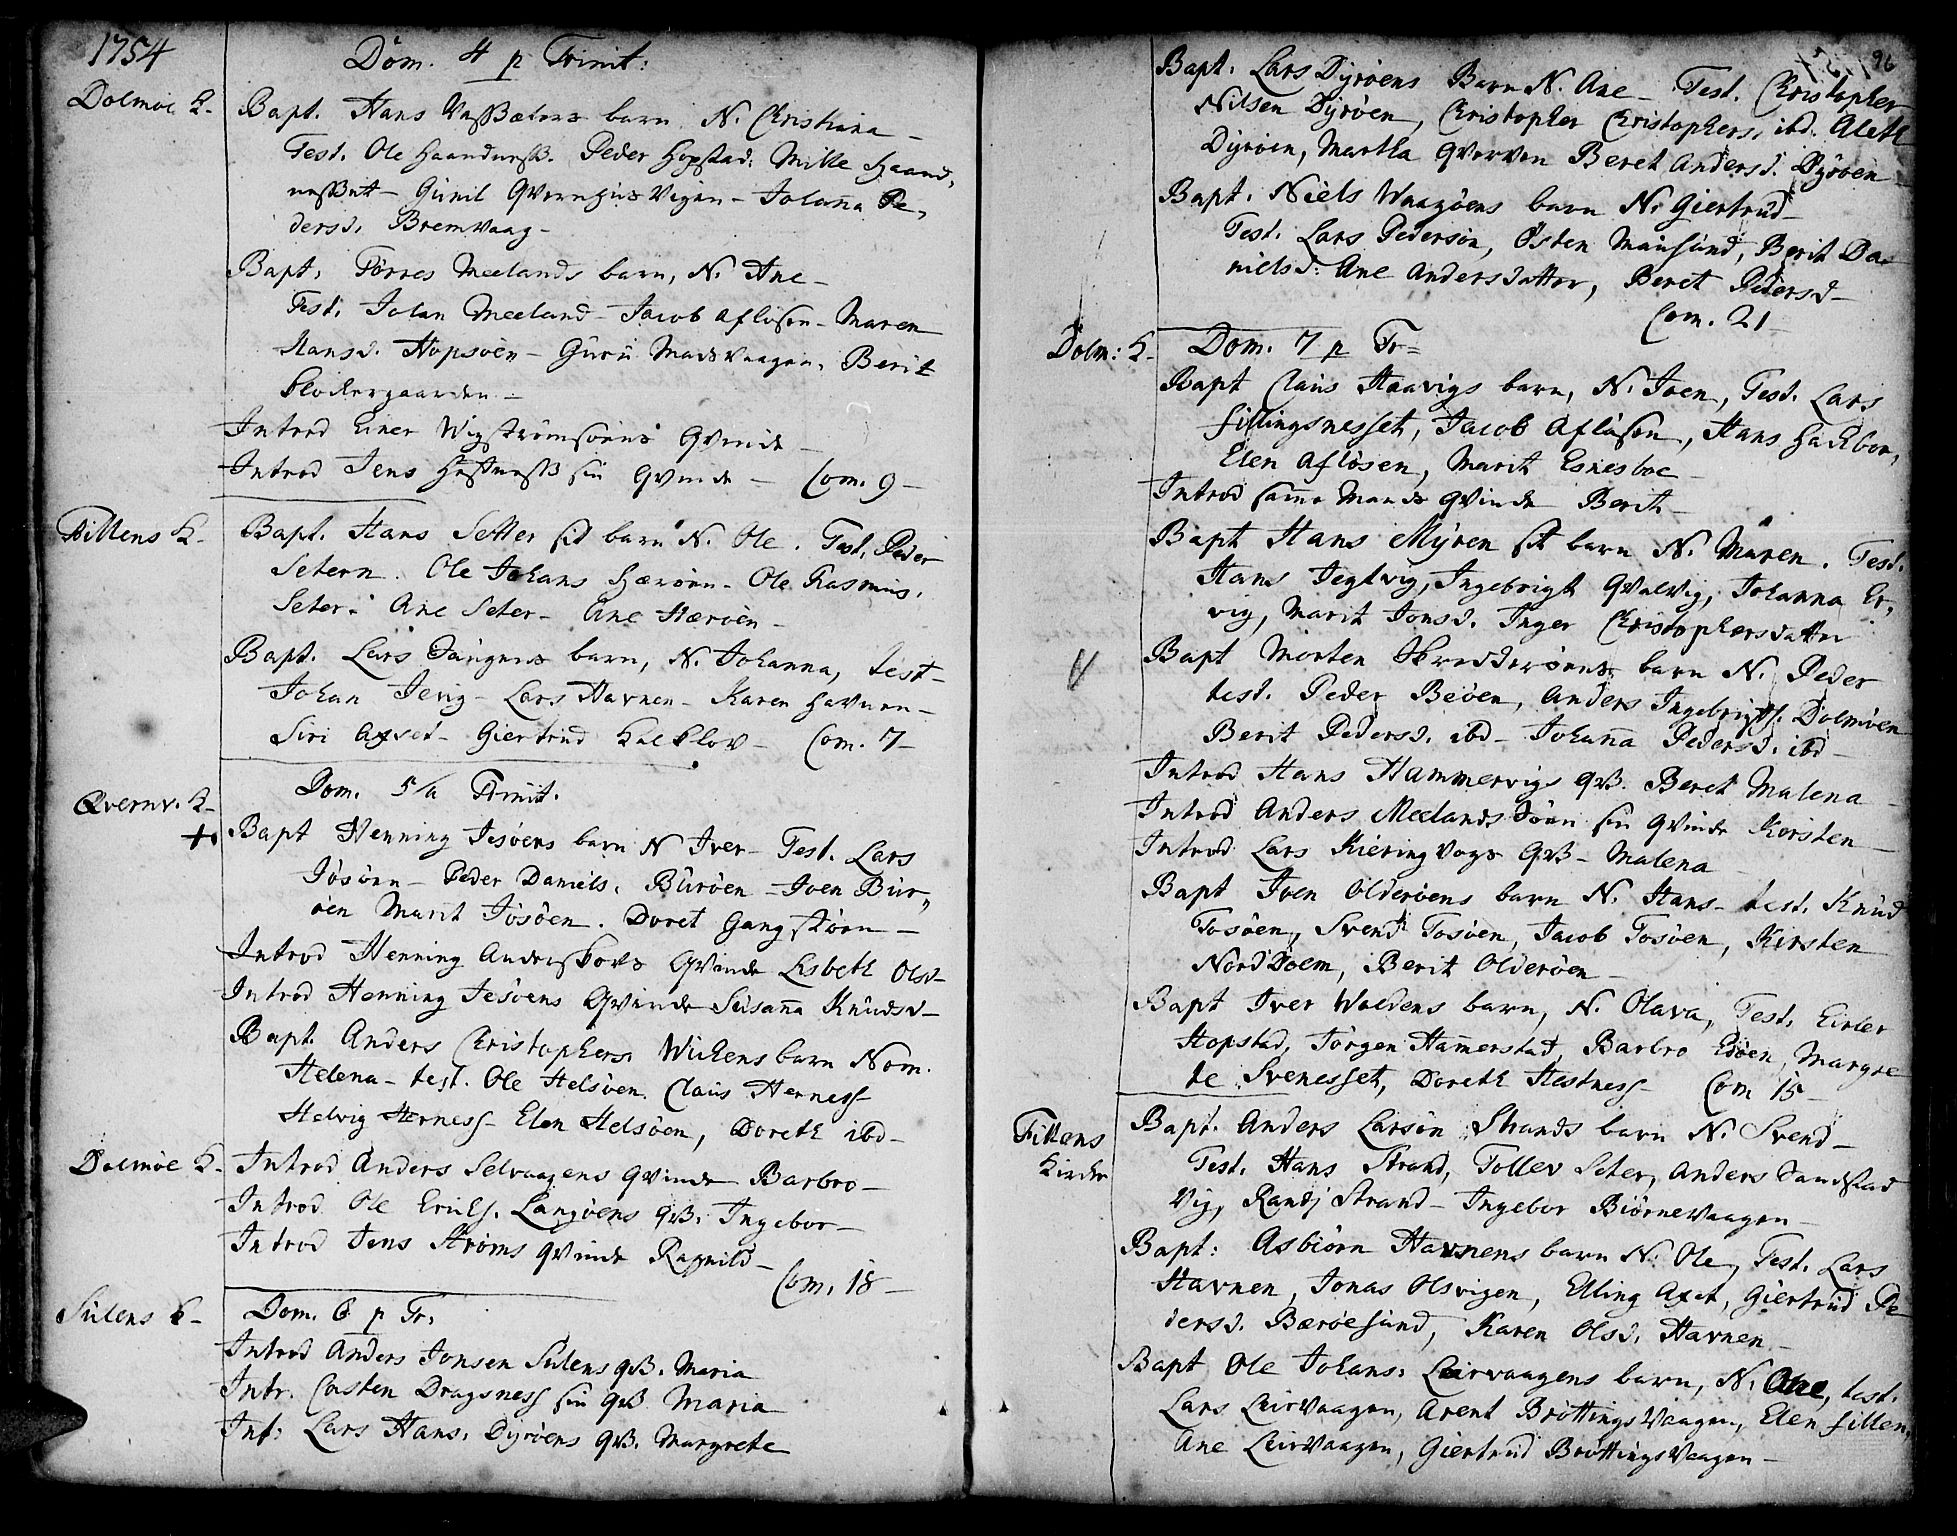 1754
Dom. 4 p Trinit:
Dolmøe K.
Bapt. Hans Vassæters barn N. Christiana –
Test. Ole Haandness. Peder Hopstad. Mille Haand,
nessett – Gunil Qvernhus Vigen – Johanna Pe,
dersd. Bremvaag –
Bapt. Tørres Meelands barn, N. Ane –
Test. Johan Meeland – Jacob Afløsen – Maren
Hansd. Hopsøen – Guru Madsvaagen, Berit
Klockergaarden –
Introd Einer Wigstrømsøens Qvinde –
Introd Jens Hestness sin Qvinde – Com. 9 –
Fillens K.
Bapt. Hans Setter sit barn N. Ole. Test. Peder
Setern. Ole Johans Hærøen – Ole Rasmus.
Seter. Ane Seter – Ane Hærøen –
Bapt. Lars Tangens barn, N. Johanna, test –
Johan Jevig – Lars Havnen – Karen Havnen –
Siri Axset – Giertrud Kalklov – Com. 7 –
Dom. 5 a Trinit.
Qvernv. K –
+. Bapt Henning Jesøens barn N Iver – Test. Lars
Jøsøen – Peder Daniels. Burøen – Joen Bur,
øen Marit Jøsøen. Doret Gangstøen –
Introd Henning Anderskogs Qvinde Lisbeth Olsd –
Introd Henning Jesøens Qvinde Susanna Knudsd –
Bapt. Anders Christophers. Wickens barn Nom.
Helena – test. Ole Helsøen. Claus Herness
Helvig Herness – Elen Helsøen, Doreth ibd –
Dolmøe K.
Introd Anders Selvaagens Qvinde Barbro –
Introd Ole Ericks. Langøens qv. Ingebor –
Introd Jens Strøms qvinde Ragnild –
Com. 18 –
Sulens K –
Dom. 6 p Tr.
Introd Anders Jonsen Sulens qv. Maria
Intr. Casten Dragsness sin qv. Maria
Int: Lars Hans. Dyrøens qv. Margrete
96
Bapt. Lars Dyrøens Barn N. Ane – Test. Christopher
Nilsen Dyrøen, Christopher Christophers. ibd. Aleth
Dyrøen, Martha Qverven Beret Andersd. Dyrøen –
Bapt. Niels Waagøens barn N. Giertrud –
Test. Lars Pedersøn, Østen Mausund, Berit Da,
nielsd: Ane Andersdatter, Beret Pedersd –
Com. 21
Dolm: K –
Dom. 7 p Tr =
Bapt Claus Haavigs barn, N. Joen, Test. Lars
Fillingsnesset, Jacob Afløsen, Hans Hackbor,
Elen Afløsen, Marit Esnesboe –
Introd samme Mands Qvinde Berit –
Bapt Hans Myren sit barn N. Maren. Test.
Hans Jegtvig, Ingebrigt Qvalvig, Johanna Er,
vig, Marit Jonsd. Inger Christophersdatter
Bapt Morten Skreddersøens barn N. Peder
test. Peder Beøen, Anders Ingebrigts. Dolmøen
Berit Pedersd. ibd – Johanna Pedersd. ibd –
Introd Hans Hammervigs qv. Beret Malena –
Introd Anders Meelandssøen sin qvinde Kirsten –
Introd Lars Kieringvogs qv – Malena –
Bapt Joen Olderøens barn N. Hans – test. Knud
Tosøen, Svend Tosøen, Jacob Tosøen, Kirsten
Norddoem, Berit Olderøen –
Bapt Iver Woldens barn, N. Olava, Test. Eider
Hopstad, Jørgen Hamerstad, Barbro Edøen, Margre
te Svenesset, Doreth Hestness – Com 15 –
Fillens
Kirche
Bapt. Anders Larsøn Strands barn N. Svend –
Test. Hans Strand, Tollev Seter, Anders Sandstad
Vig, Randj Strand – Ingebor Biørnevaagen –
Bapt: Asbiørn Havnens barn N. Ole, Test. Lars
Havnen, Jonas Olsvigen, Elling Axet, Giertrud Pe
dersd. Bærøesund, Karen Olsd. Havnen –
Bapt Ole Johans: Leirvaagens barn, N. Ane, test.
Lars Leirvaagen, Arent Brøttingsvaagen, Elen Fillen,
Ane Leirvaagen, Giertrud Brøttingsvaagen –